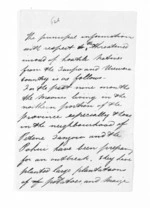 The principal information
with respect to threatened
of hostile Natives
from the Taupo and
Country is as follows.
In the past nine months
the Maoris living in the
northern portion of the
province especially those
in the neighbourhood of
and the
have been preparing
for an outbreak. They have
planted large plantations
of potatoes and